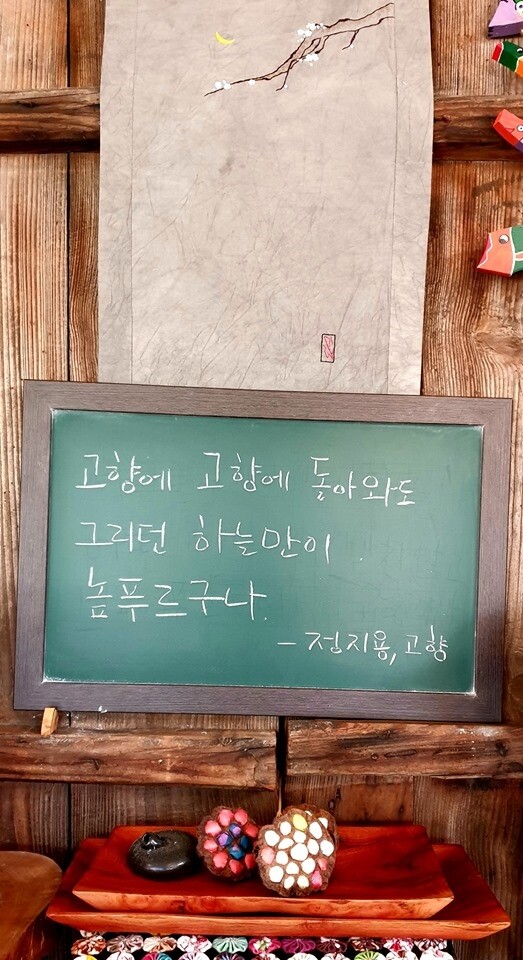 고향에 고향에 돌아와도
그리던 하늘만이
높푸르구나.
- 정지용, 고향